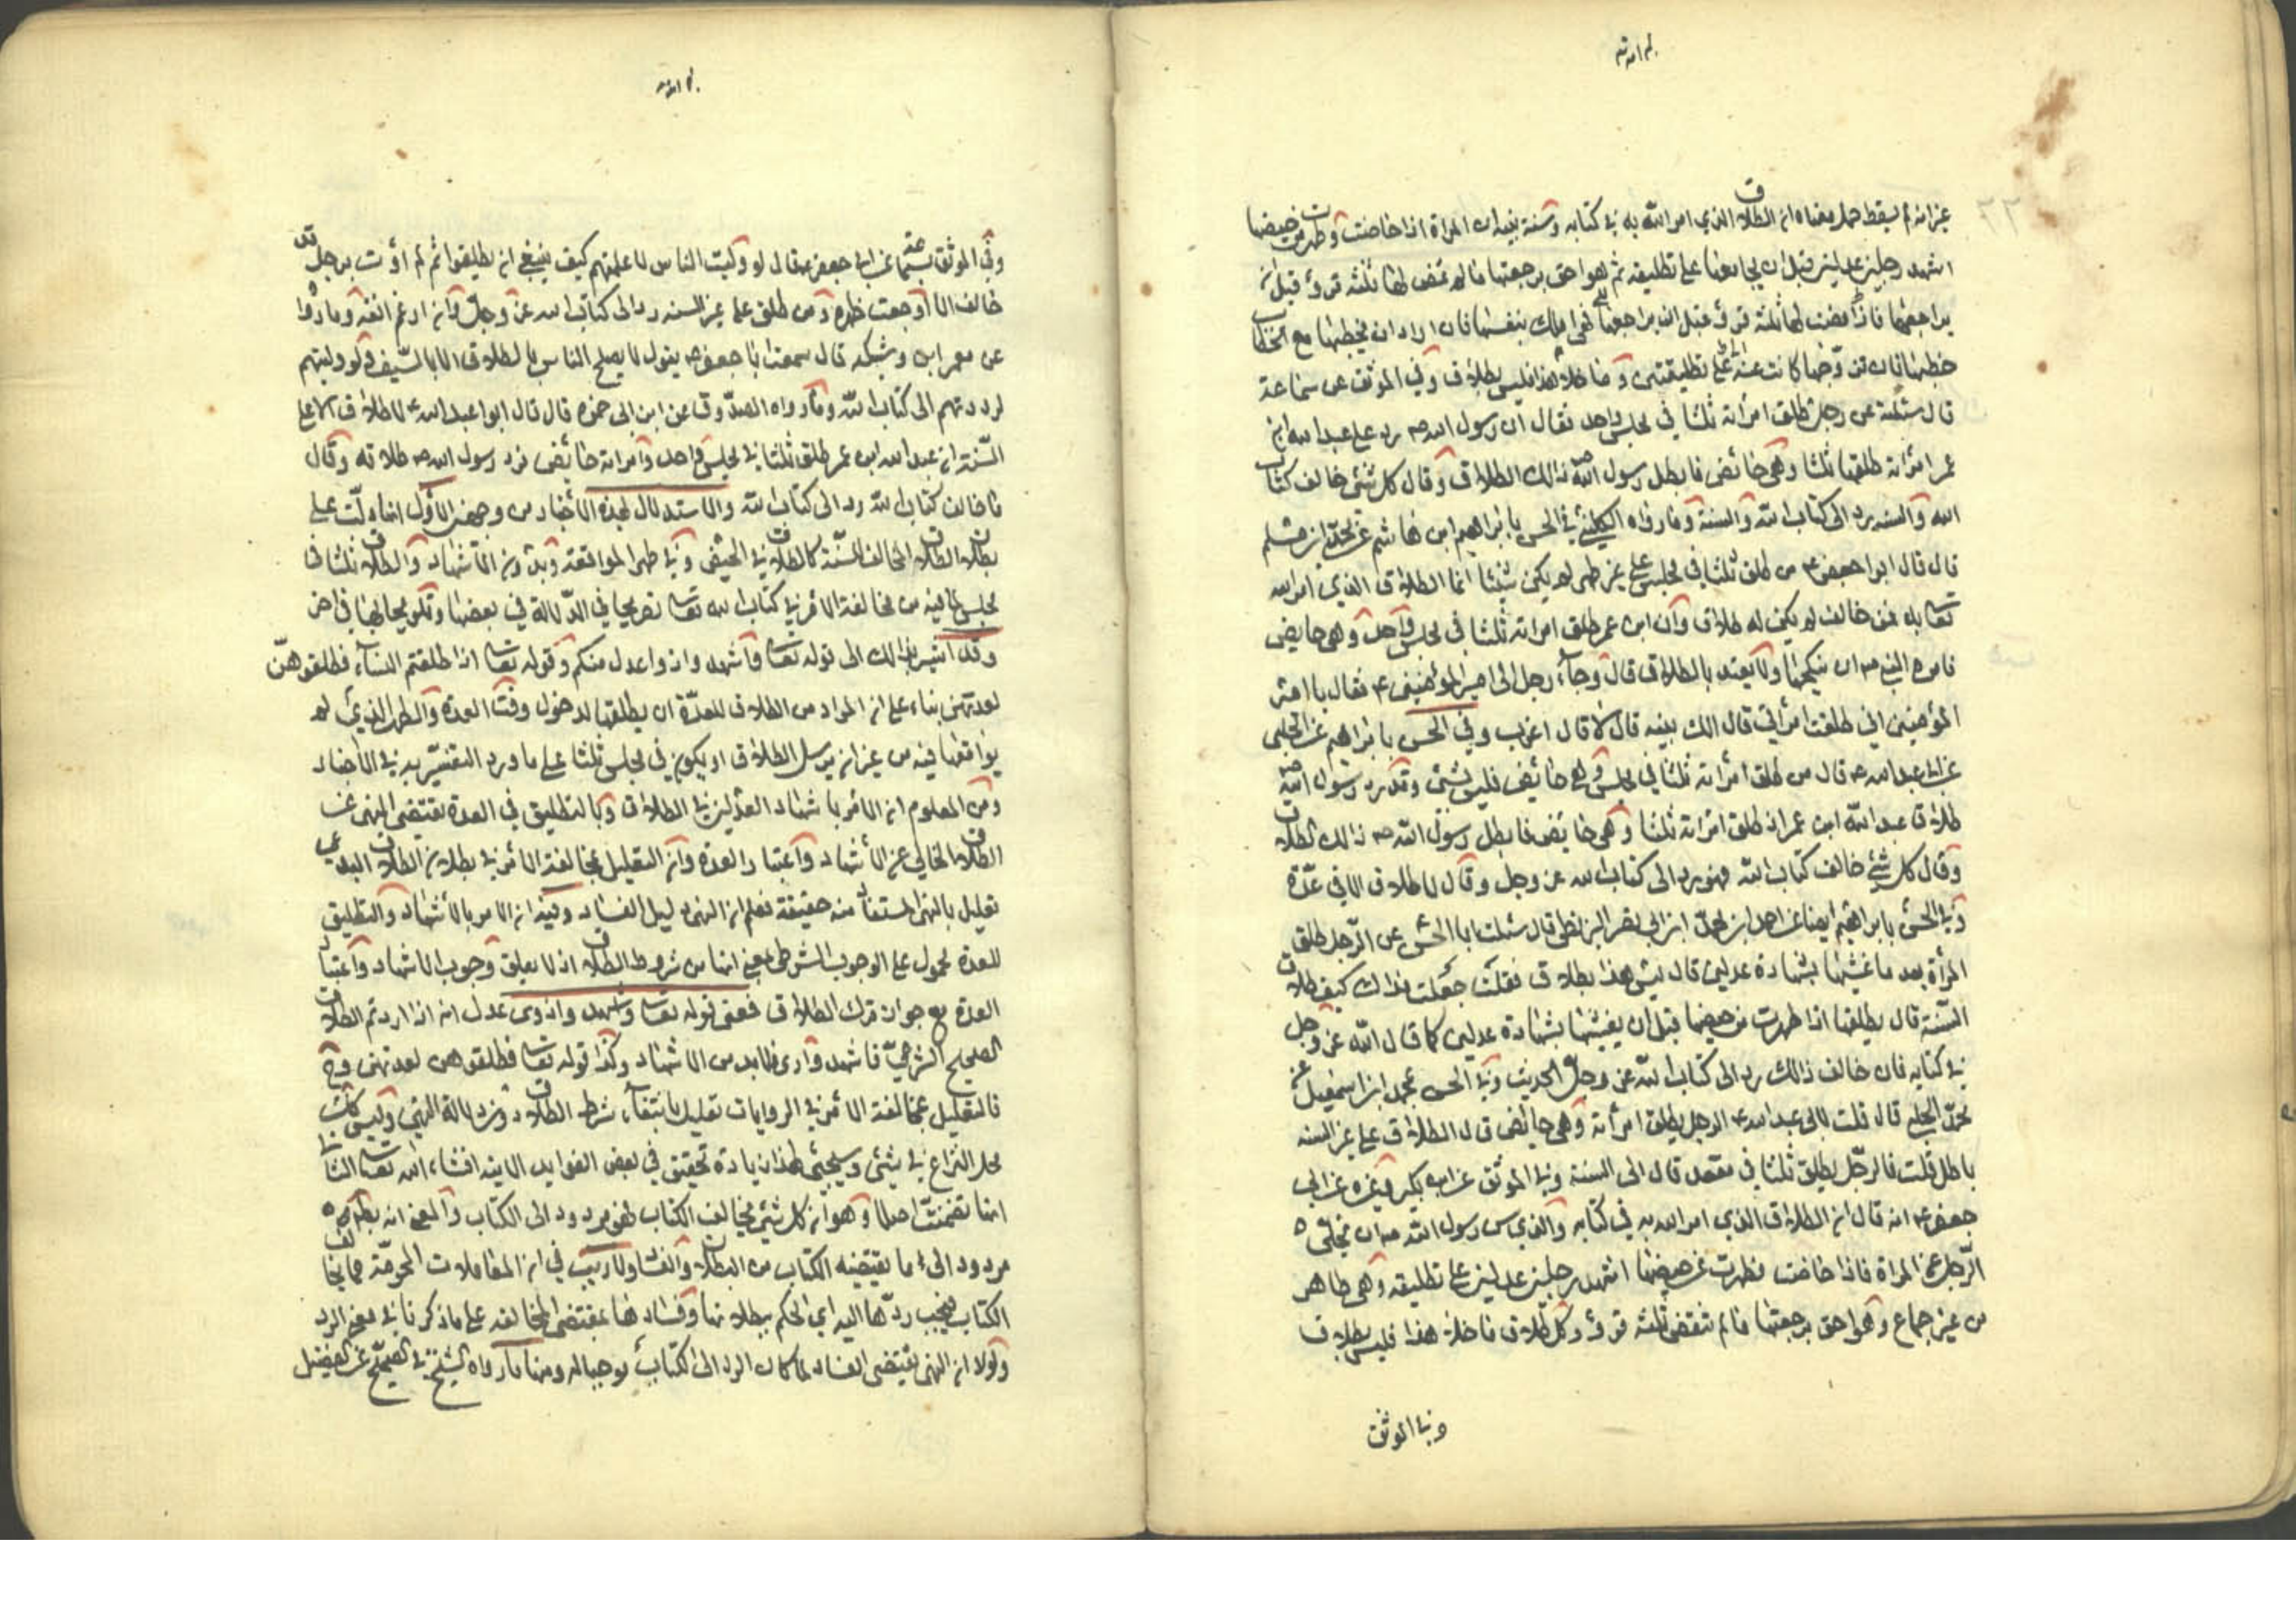 بم الله ته
غير انه لم يسقط حمل معناه ان الطلاق الذي امر الله به في كتابه وسنة نبيه ان المراة اذا حاضت وطهرت من حيضها
اشهد رجلين عدلين قبل ان يجامعها على تطليقه ثم هو احق برجعتها ما لم تمض لها ثلثة قروء قبل ان
يراجعها فاذا مضت لها ثلثة قروء قبل ان يراجعها فهي املك بنفسها فان اراد ان يخطبها مع الخطاب
خطبها فان تزوجها كانت عنده على تطليقتين وما خلا هذا فليس بطلاق وفي الموثق عن سماعة
قال سئلته عن رجل طلق امرأته ثلثا في مجلس واحد فقال ان رسول الله ص رد على عبد الله ابن
عمر امرأته طلقها ثلثا وهي حائض فابطل رسول الله ص ذلك الطلاق وقال كل شئ خالف كتاب
الله والسنه يرد الى كتاب الله والسنة وما رواه الكليني في الحسن بابراهيم ابن هاشم عن محمد ابن مسلم
قال قال ابوا جعفر ع من طلق ثلثا في مجلس على غير طهر لم يكن شيئا انما الطلاق الذي امر الله
تعا به فمن خالف لم يكن له طلاق وان ابن عمر طلق امراته ثلثا في مجلس واحد وهي حايض
فامره النبي ص ان ينكحها ولا يعتد بالطلاق قال وجاء رجل الى امير المؤمنين ع فقال يا امير
المؤمنين اني طلقت امرأتي قال الك بينه قال لا قال اعزب وفي الحسن بابراهيم عن الحلبي
عن ابي عبد الله ع قال من طلق امرأته ثلثا في مجلس وهي حائض فليس بشئ وقد رد رسول الله ص
طلاق عبد الله ابن عمر اذ طلق امراته ثلثا وهي حائض فابطل رسول الله ص ذالك الطلاق
وقال كل شئ خالف كتاب الله فهو يرد الى كتاب الله عز وجل وقال لا طلاق الا في عدة
وفي الحسن بابراهيم ايضا عن احمد ابن محمد ابن ابي نصر البزنطي قال سئلت ابا الحسن عن الرجل طلق
المرأة بعد ما غشيها بشهادة عدلين قال ليس هذا بطلاق فقلت جعلت فداك كيف طلاق
السنة قال يطلقها اذا طهرت من حيضها قبل ان يغشيها بشهادة عدلين كما قال الله عز وجل
في كتابه فان خالف ذالك رد الى كتاب الله عز وجل الحديث وفي الحسن بمحمد ابن اسمعيل عن
محمد الحلبي قال قلت لابي عبد الله ع الرجل يطلق امرأته وهي حائض قال الطلاق على غير السنه
باطل قلت فالرجل يطلق ثلثا في مقعد قال الى السنة وفي الموثق عن ابن بكير وغيره عن ابي
جعفر ع انه قال ان الطلاق الذي امر الله به في كتابه والذي سن رسول الله ص ان يخلي
الرجل عن المراة فاذا حاضت وطهرت عن حيضها اشهد رجلين عدلين على تطليقه وهي طاهر
من غير جماع وهو احق برجعتها ما لم تنقض ثلثة قروء وكل طلاق ما خلا هذا فليس بطلاق
وفي الموثق
بم الله
وفي الموثق بسماعة عن ابي جعفر ع قال لو وليت الناس لاعلمتهم كيف ينبغي ان يطلقوا ثم لم اوت برجل قد
خالف الا اوجعت ظهره ومن طلق على غير السنه رد الى كتاب الله عز وجل وان ارغم انفه وما روا
عن معمر ابن وشيكه قال سمعت ابا جعفر ع يقول لا يصلح الناس في الطلاق الا بالسيف ولو وليتهم
لرددتهم الى كتاب الله وما رواه الصدوق عن ابن ابي حمزه قال قال ابوا عبد الله ع لا طلاق الا على
السنة ان عبد الله ابن عمر طلق ثلثا في مجلس واحد وامراته حائض فرد رسول الله ص طلاقه وقال
ما خالف كتاب الله رد الى كتاب الله والاستدلال بهذه الأخبار من وجهين الأول انها دلت على
بطلان الطلاق المخالف للسنة كالطلاق في الحيض وفي طهر المواقعة وبدون الاشهاد والطلاق ثلثا في
مجلس لما فيه من مخالفة الأمر في كتاب الله تعا تصريحا في الدلالة في بعضها وتلويحا بها في اخر
وقد اشير بذالك الى قوله تعا واشهدوا ذوا عدل منكم وقوله تعا اذا طلقتم النساء فطلقوهن
لعدتهن بناء على ان المراد من الطلاق للعدة ان يطلقها لدخول وقت العدة والطهر الذي لم
يواقعها فيه من غير ان يرسل الطلاق او يكون في مجلس ثلثا على ما ورد التفسير به في الاخبار
ومن المعلوم ان الأمر باشهاد العدلين في الطلاق وبالتطليق في العدة يقتضي النهي عن
الطلاق الخالي عن الأشهاد واعتبار العدة وان التعليل بمخالفة الأمر في بطلان الطلاق البدعي
تعليل بالنهي المستفاد منه حقيقة فعلم ان النهي دليل الفساد وفيه ان الامر بالأشهاد والتطليق
للعدة محمول على الوجوب الشرطي بمعنى انها من شروط الطلاق اذ لا يعلق وجوب الاشهاد واعتبار
العدة مع جواز ترك الطلاق فمعنى قوله تعا واشهدوا ذوى عدل انه اذا اردتم الطلاق
الصحيح الشرعي فاشهدوا اذ لابد من الاشهاد وكذا قوله تعا فطلقوهن لعدتهن وح
فالتعليل بمخالفة الأمر في الروايات تعليل بانتفاء شرط الطلاق دون دلالة النهي وليس ذلك
محل النزاع في شئ وسيجئ لهذا زيادة تحقيق في بعض الفوايد الاتية انشاء الله تعا الثاني
انها تضمنت اصلا وهو ان كل شئ يخالف الكتاب فهو مردود الى الكتاب والمعنى انه بظاهره
مردود الى ما يقتضيه الكتاب من البطلان والفساد ولا ريب في ان المعاملات المحرمة مما يخالف
الكتاب فيجب ردها اليه اي الحكم ببطلانها وفسادها بمقتضى المخالفه على ما ذكرنا في معنى الرد
ولولا ان النهي يقتضى الفساد لما كان الرد الى الكتاب موجبا له ومنها ما رواه الشيخ في الصحيح عن الفضيل